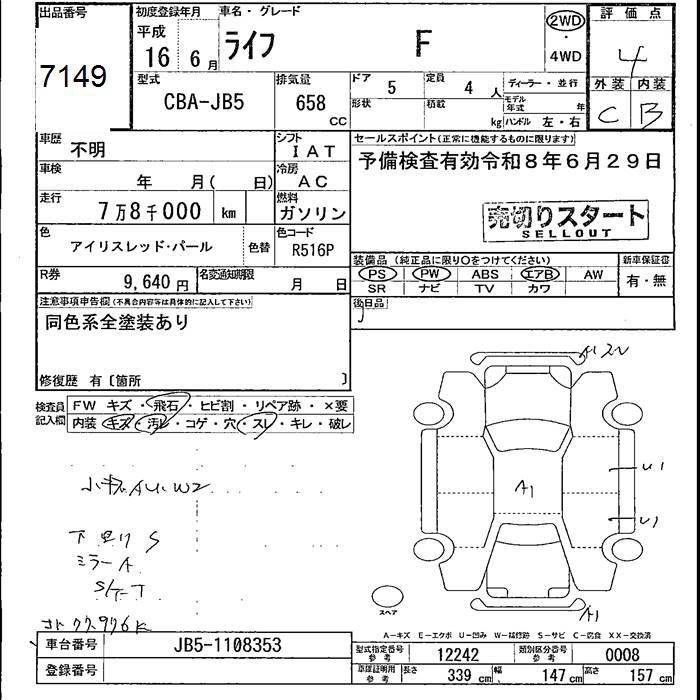 出品番号
7149
初度登録年月
平成
16 6月
車名・グレード
ライフ F
2WD
・
4WD
評価点
4
外装 内装
C B
型式
CBA-JB5
排気量
658
cc
ドア 5 定員 4 人
形状 積載 kg
ディーラー・並行
モデル年式 年
ハンドル 左・右
車歴
不明
シフト
IAT
車検
年 月( 日)
冷房
AC
走行
7万8千000 km
燃料
ガソリン
色
アイリスレッド・パール
色替
色コード
R516P
R券
9,640円
名変通知期限
月 日
セールスポイント(正常に機能するものに限ります)
予備検査有効令和8年6月29日
売切りスタート
SELLOUT
装備品(純正品に限り○をつけてください)
PS PW ABS エアB AW
SR ナビ TV カワ
新車保証書
有・無
後日品
注意事項申告欄(不具合内容等は具体的に記入して下さい)
同色系全塗装あり
修復歴 有〔箇所 〕
検査員
記入欄
FW キズ・飛石・ヒビ割・リペア跡・×要
内装 キズ・汚レ・コゲ・穴・スレ・キレ・破レ
小キズ AU.W2
S
ミラーA
A1
U1
U1
A1
スペア
A-キズ E-エクボ U-凹み W-補修跡 S-サビ C-腐食 XX-交換済
車台番号
JB5-1108353
登録番号
型式指定番号
参考
12242
類別区分番号
参考
0008
車庫証明用
参考
長さ 339 cm 幅 147 cm 高さ 157 cm